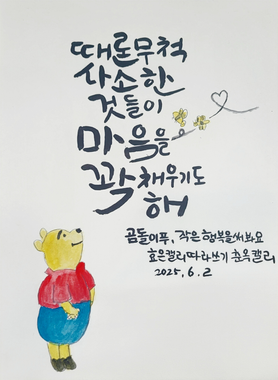 때론무척
사소한
것들이
마음을
꽉채우기도
해
곰돌이푸, 작은행복을써봐요
효은캘리따라쓰기 춘옥캘리
2025. 6. 2